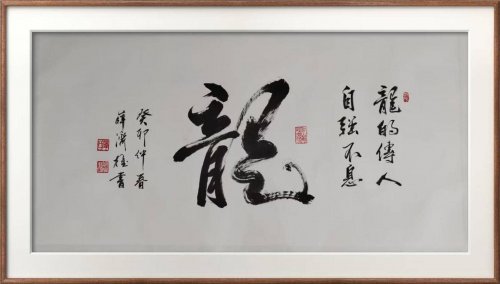 龍的傳人
自強不息
龍
癸卯仲春
薛濟桂書